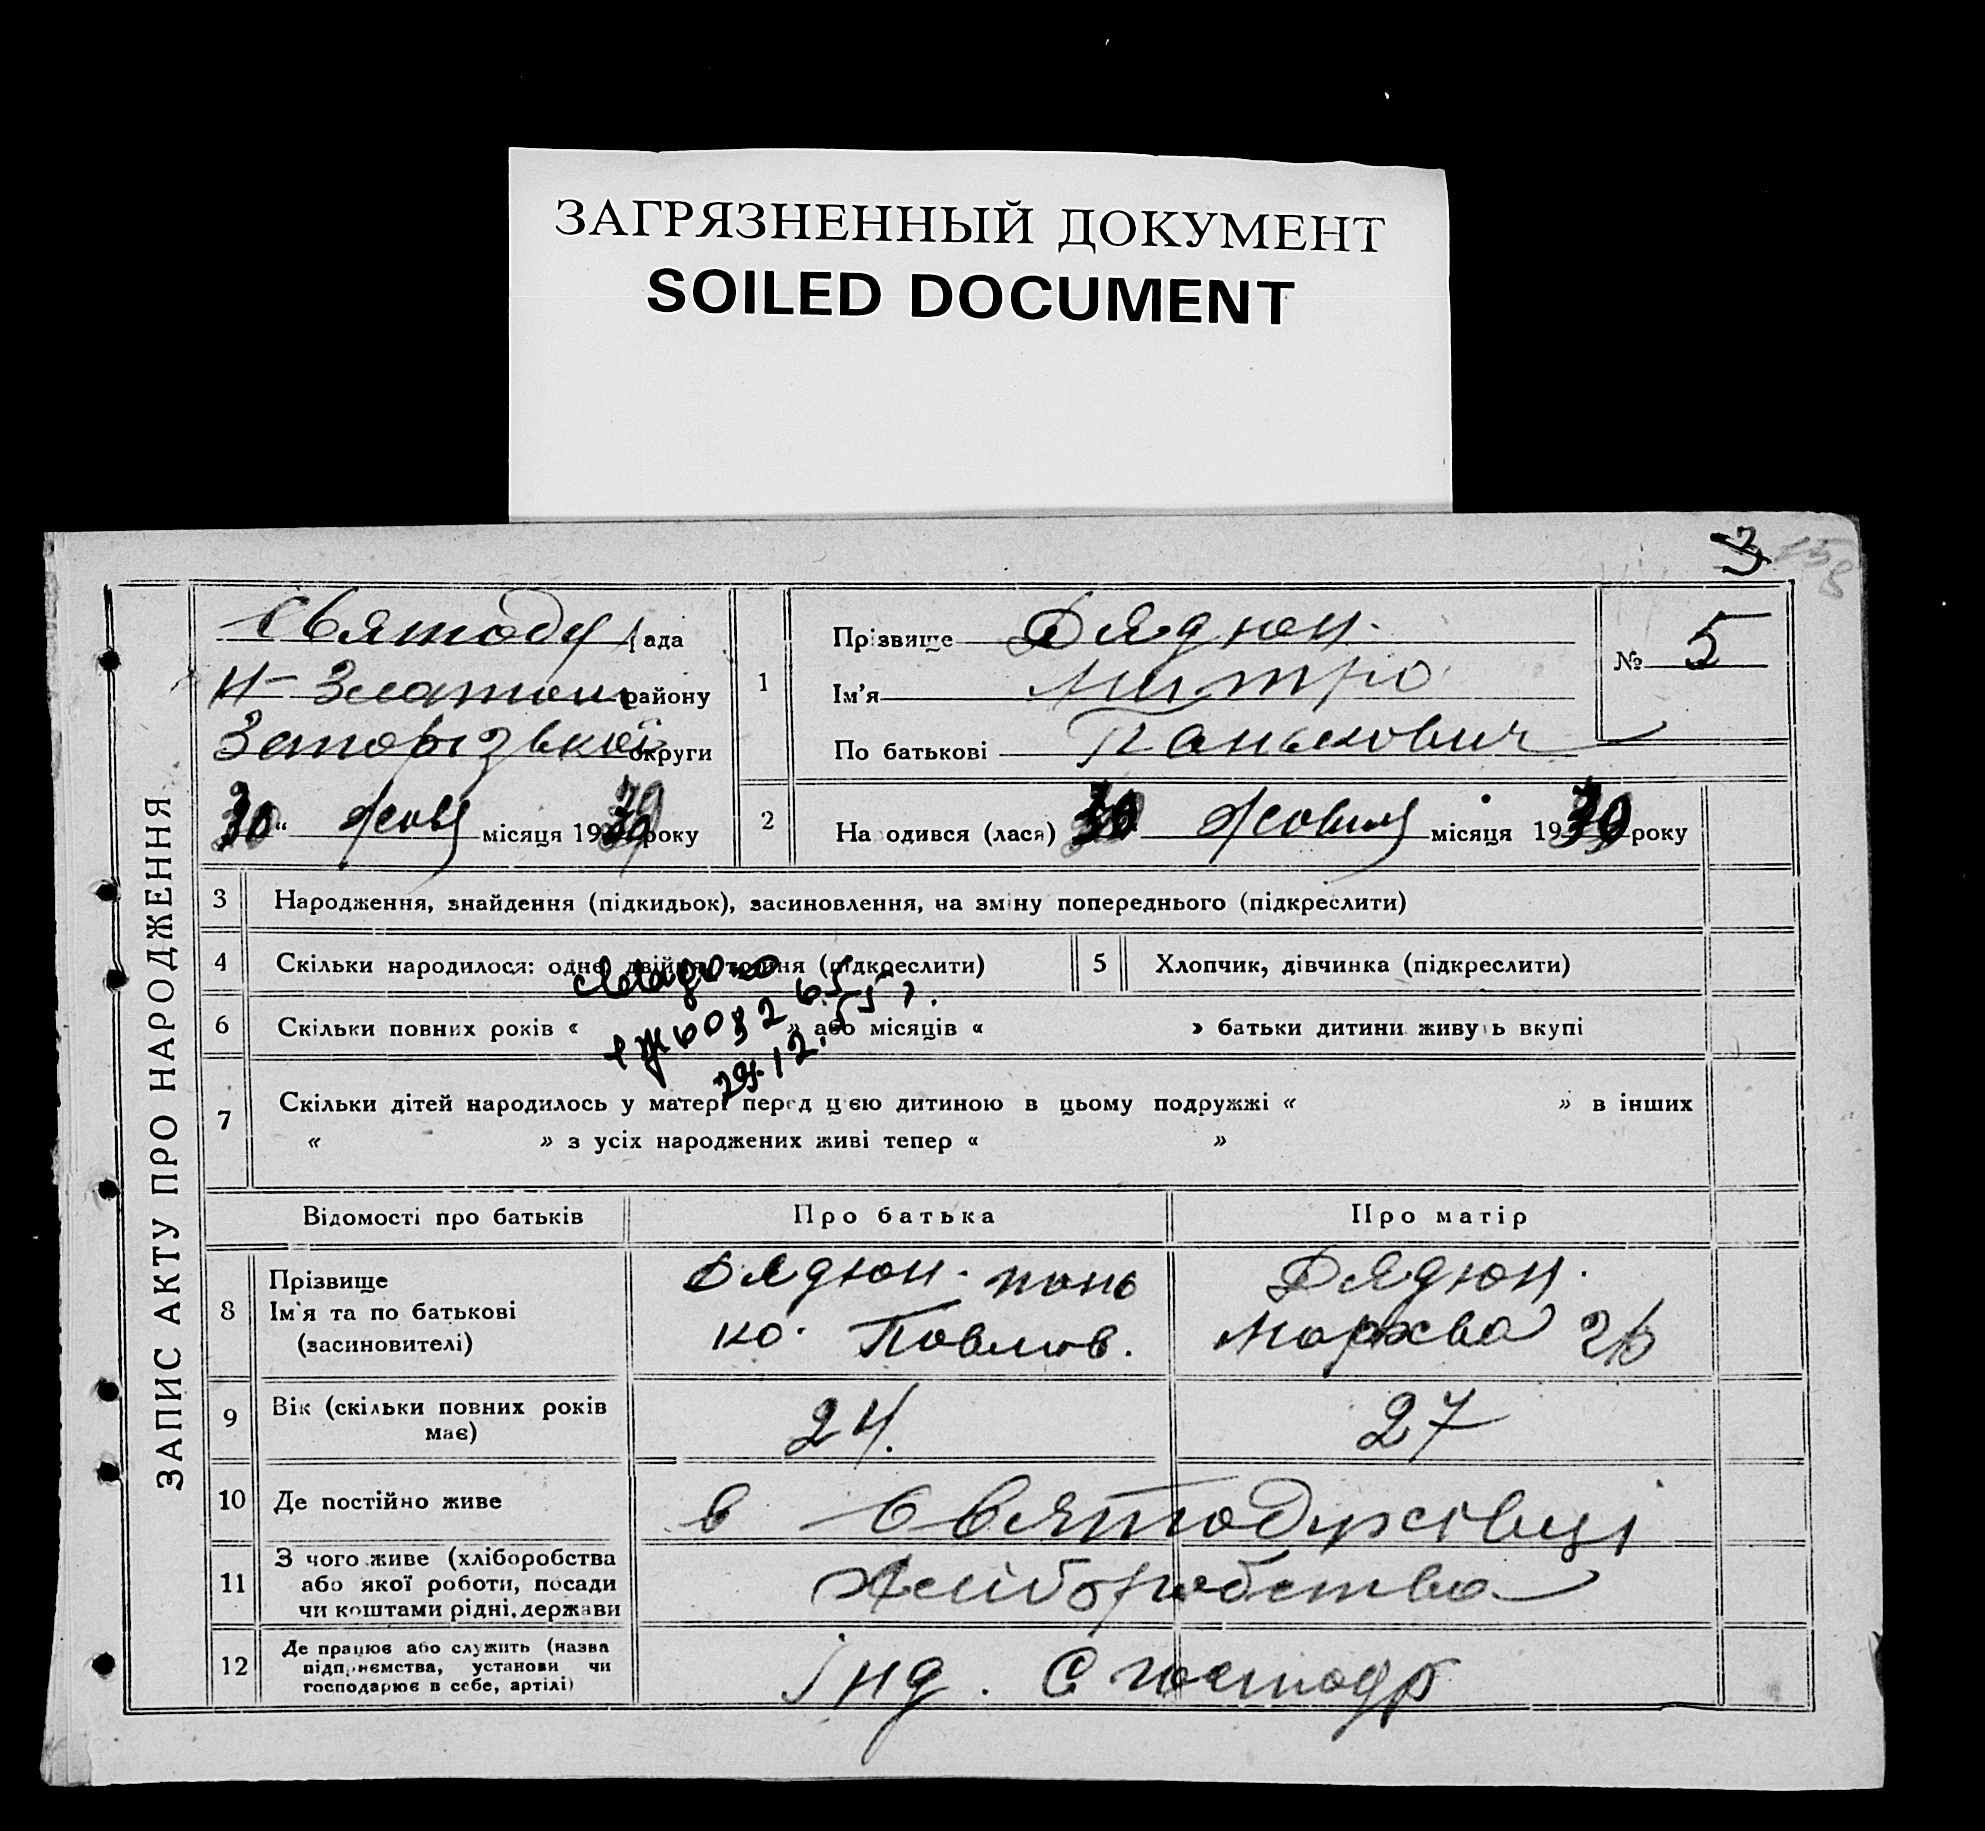 ЗАГРЯЗНЕННЫЙ ДОКУМЕНТ
SOILED DOCUMENT
3
ЗАПИС АКТУ ПРО НАРОДЖЕННЯ
Святоду рада
Н-Златоп району
округи
30 " Жовт місяця 1930 року
1
Прізвище Дядюн.
Ім'я Митро
По батькові Панькович
№ 5
2
Народився (лася) 30 Жовтня місяця 1930 року
3 Народження, знайдення (підкидьок), засиновлення, на зміну попереднього (підкреслити)
4 Скільки народилося: одне, двійня, тройня (підкреслити)
5 Хлопчик, дівчинка (підкреслити)
6 Скільки повних років « » або місяців « » батьки дитини живуть вкупі
29.12.55 г.
7 Скільки дітей народилось у матері перед цією дитиною в цьому подружжі « » в інших
« » з усіх народжених живі тепер « »
Відомості про батьків Про батька Про матір
8 Прізвище
Ім'я та по батькові
(засиновителі)
Дядюн. Пань
ко. Павлов.
Дядюн.
9 Вік (скільки повних років
має)
24. 27
10 Де постійно живе в Святодухівці
11 З чого живе (хліборобства
або якої роботи, посади
чи коштами рідні, держави
Хліборобства
12 Де працює або служить (назва
підприємства, установи чи
господарює в себе, артілі)
Інд. С господр